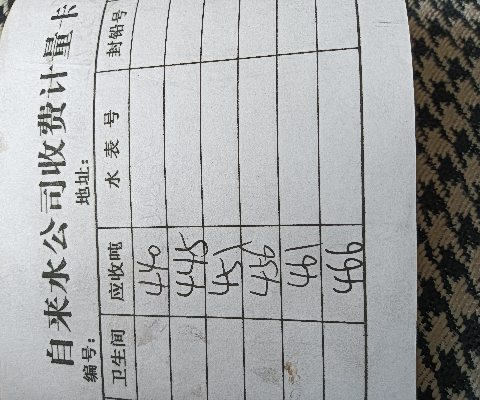 自来水公司收费计量卡
编号： 地址：
卫生间 应收吨 水表号 封铅号
440
445
451
456
461
466